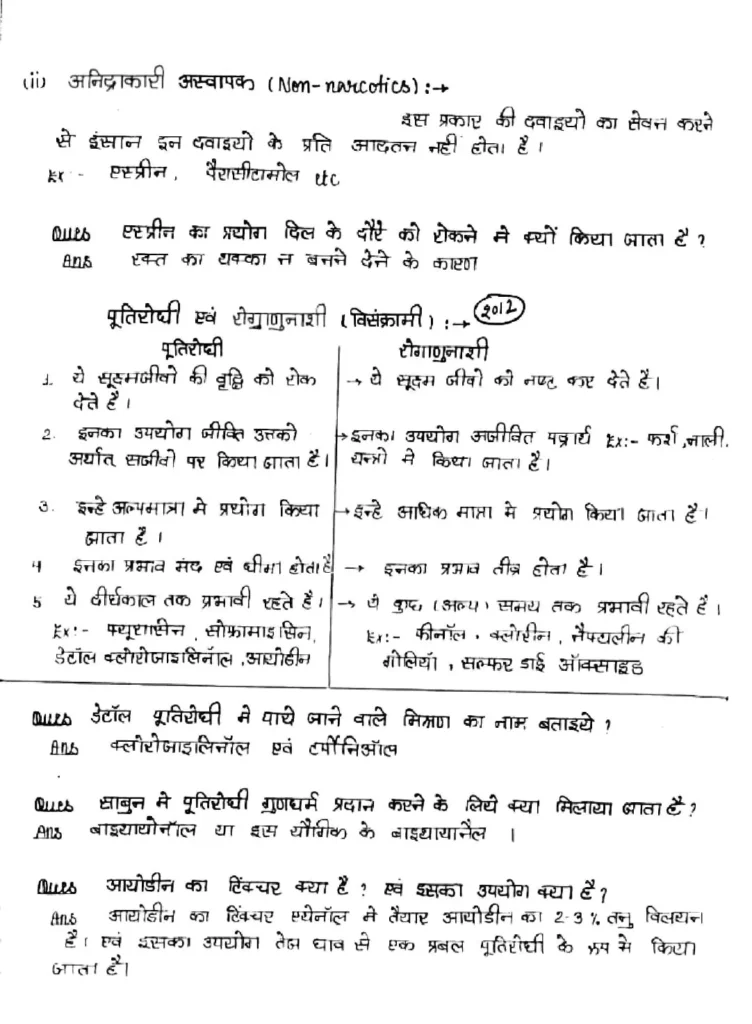 (ii) अनिद्राकारी अस्वापक (Non-narcotics) :→
इस प्रकार की दवाइयो का सेवन करने
से इंसान इन दवाइयो के प्रति आदतन नही होता है।
Ex :- एस्प्रीन, पैरासीटामोल etc
Ques एस्प्रीन का प्रयोग दिल के दौरे को रोकने मे क्यों किया जाता है ?
Ans रक्त का थक्का न बनने देने के कारण
पूतिरोधी एवं रोगाणुनाशी (विसंक्रामी) :→ 2012
पूतिरोधी रोगाणुनाशी
1. ये सूक्ष्मजीवो की वृद्धि को रोक → ये सूक्ष्म जीवो को नष्ट कर देते है।
देते है।
2. इनका उपयोग जीवित उत्तको → इनका उपयोग अजीवित पदार्थ Ex:- फर्श, नाली,
अर्थात सजीवो पर किया जाता है। यन्त्रो मे किया जाता है।
3. इन्हे अल्पमात्रा मे प्रयोग किया → इन्हे अधिक मात्रा मे प्रयोग किया जाता है।
जाता है।
4 इनका प्रभाव मंद एवं धीमा होता है → इनका प्रभाव तीव्र होता है।
5 ये दीर्घकाल तक प्रभावी रहते है। → ये कुछ (अल्प) समय तक प्रभावी रहते है।
Ex:- फ्यूरासीन, सोफ्रामाइसिन, Ex:- फीनॉल, क्लोरीन, नैफ्थलीन की
डेटॉल क्लोरोजाइलिनॉल, आयोडीन गोलियाँ, सल्फर डाई ऑक्साइड
Ques डेटॉल पूतिरोधी मे पाये जाने वाले मिश्रण का नाम बताइये ?
Ans क्लोरोजाइलिनॉल एवं टर्पीनिऑल
Ques साबुन मे पूतिरोधी गुणधर्म प्रदान करने के लिये क्या मिलाया जाता है?
Ans बाइथायोनॉल या इस यौगिक के बाइथायानैल ।
Ques आयोडीन का टिंक्चर क्या है ? एवं इसका उपयोग क्या है ?
Ans आयोडीन का टिंक्चर एथेनॉल मे तैयार आयोडीन का 2-3 % तनु विलयन
है। एवं इसका उपयोग तेज घाव से एक प्रबल पूतिरोधी के रूप मे किया
जाता है।